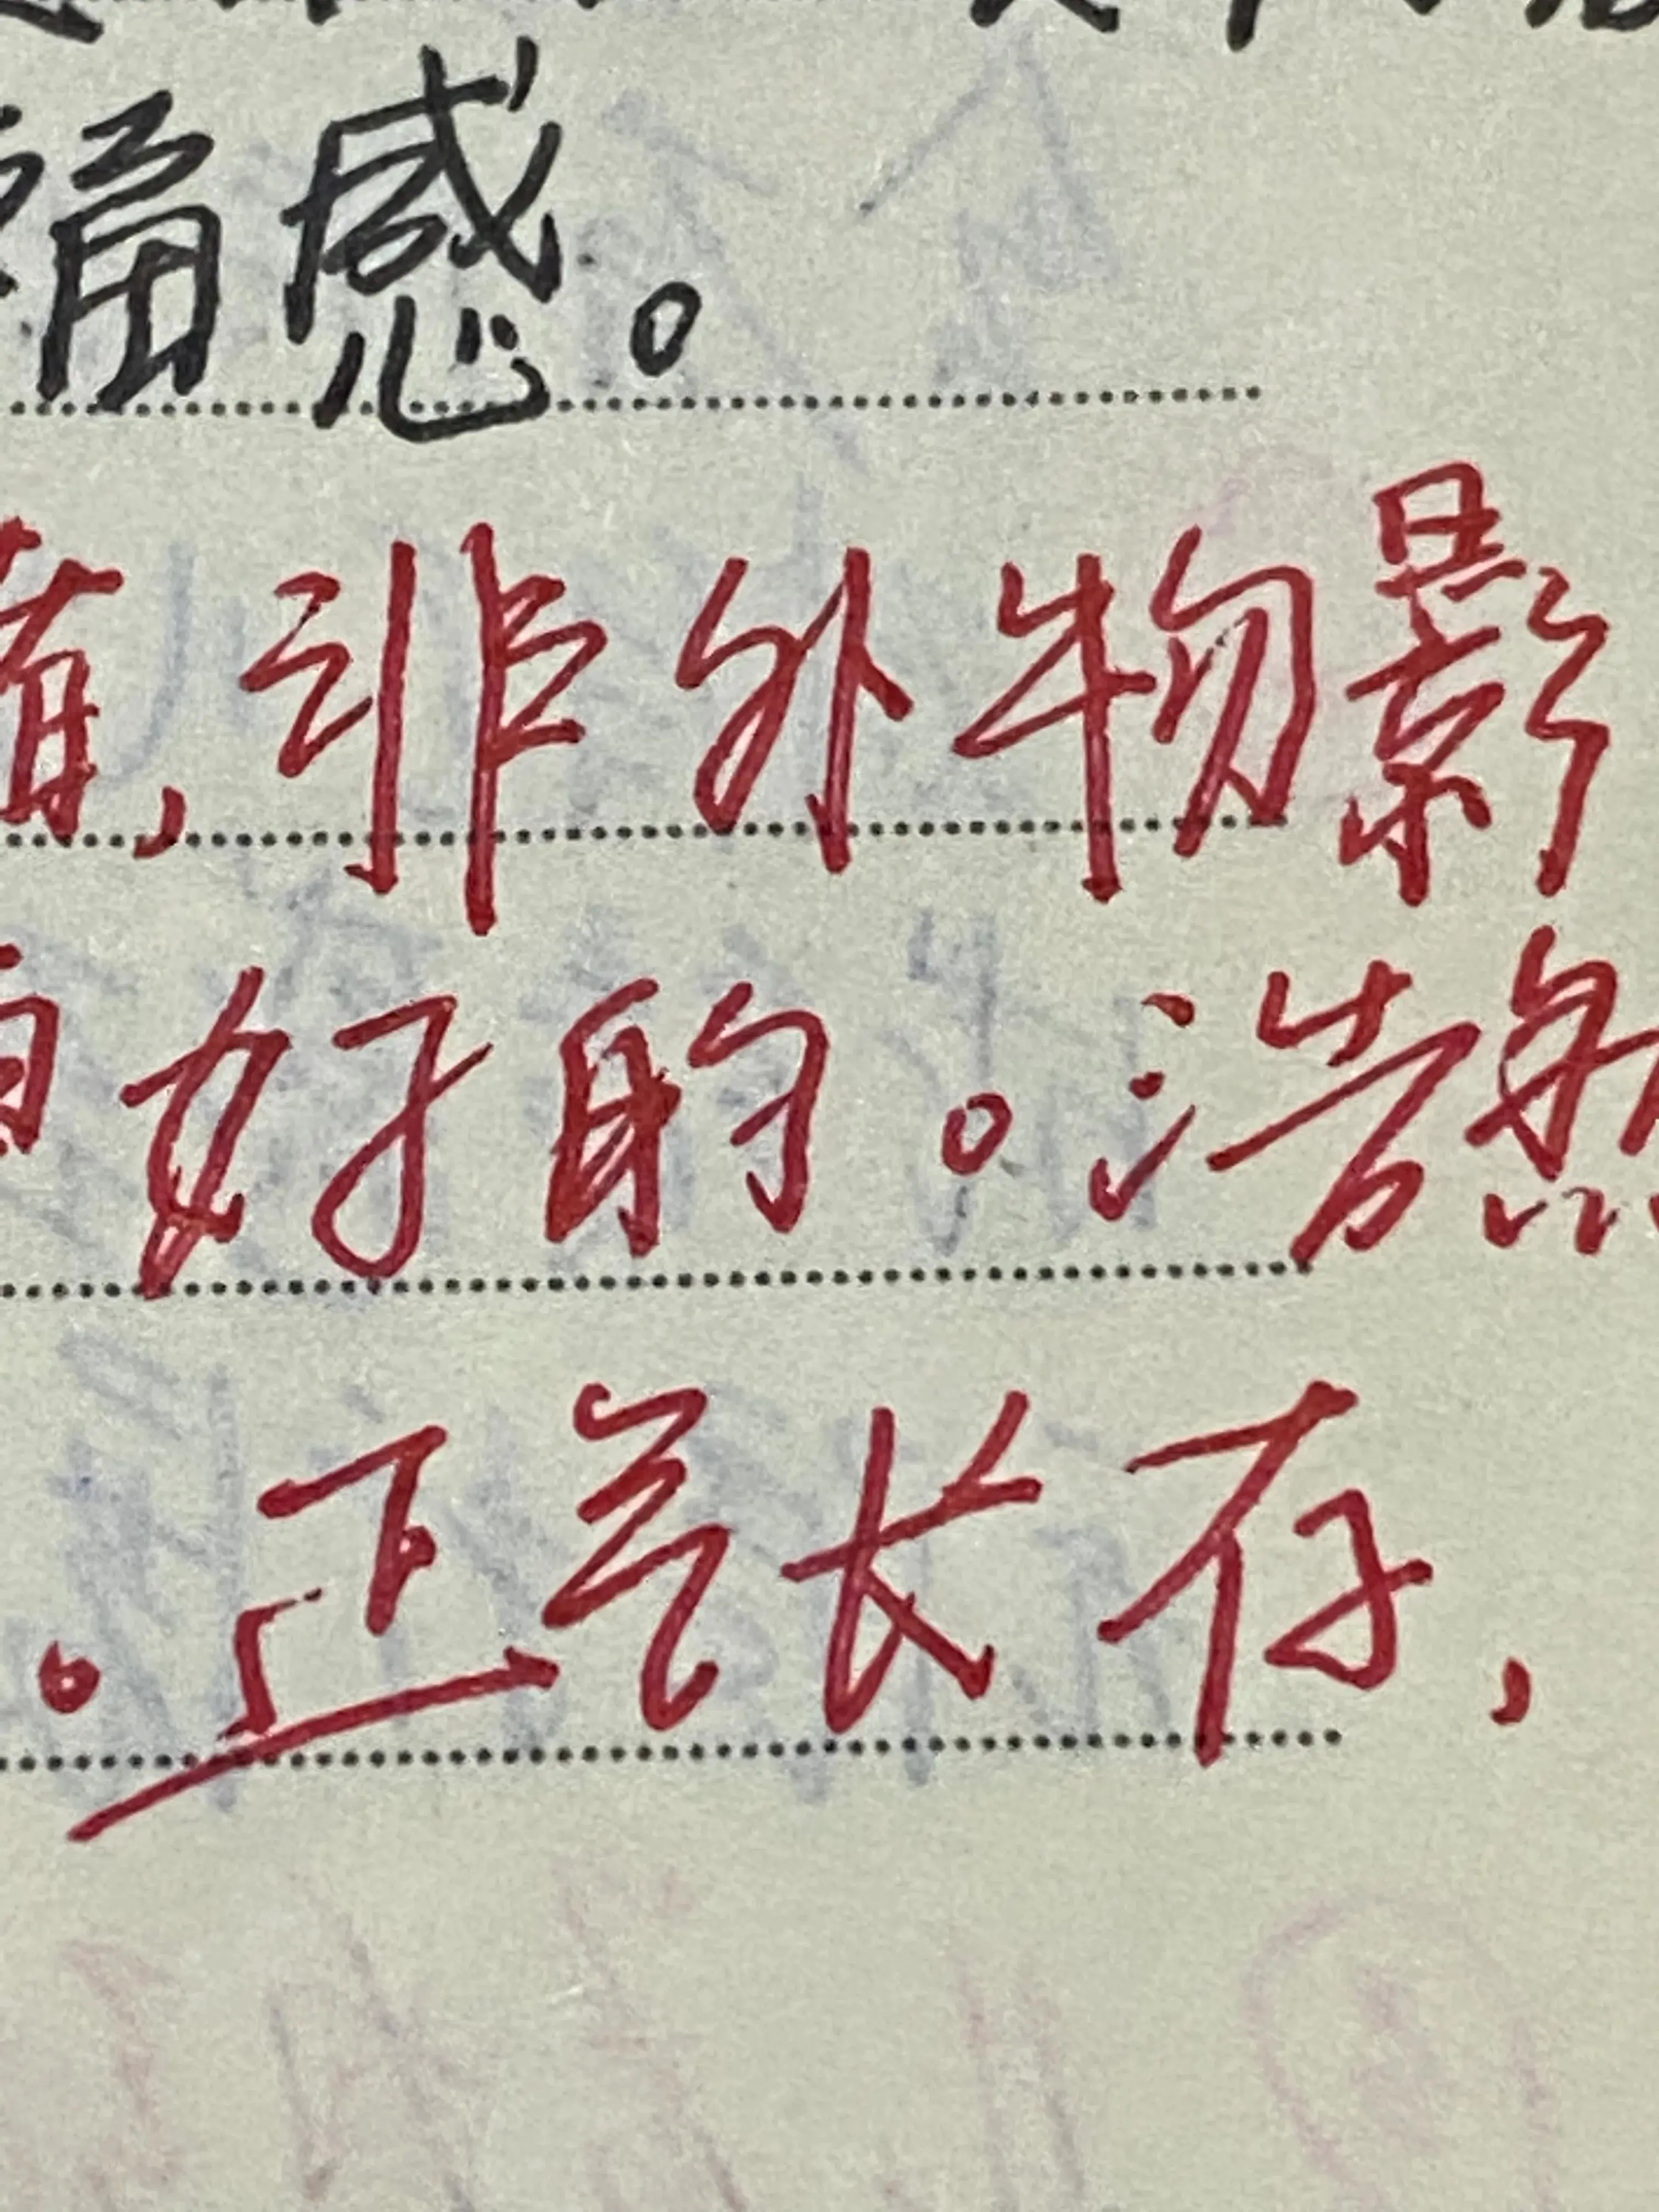 感。
，非外物影
好的。浩然
。正气长存，